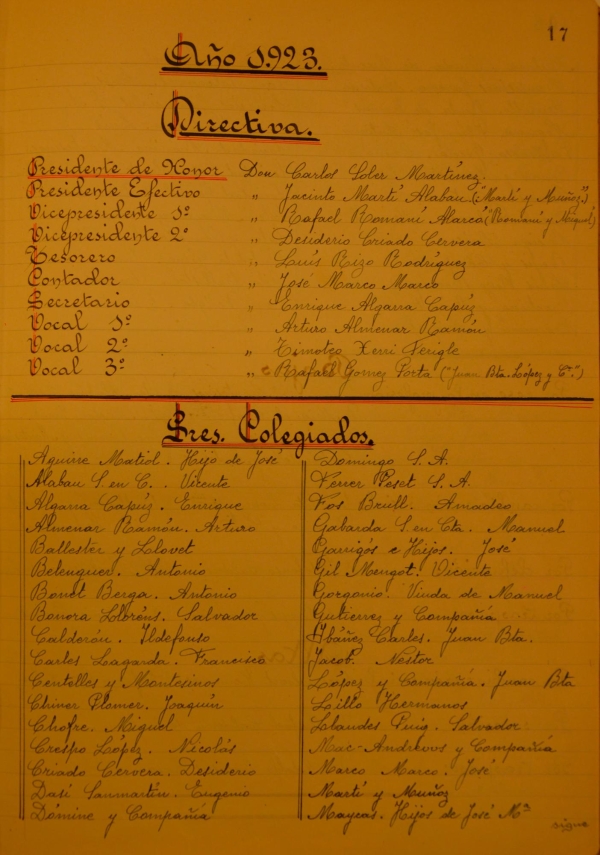 17
Año 1.923.
Directiva.
Presidente de Honor Don Carlos Soler Martínez.
Presidente Efectivo " Jacinto Martí Alabau ("Martí y Muñoz")
Vicepresidente 1º " Rafael Romaní Alarcó ("Romaní y Miquel")
Vicepresidente 2º " Desiderio Criado Cervera
Tesorero " Luis Rizo Rodríguez
Contador " José Marco Marco
Secretario " Enrique Algarra Capúz
Vocal 1º " Arturo Almenar Ramón
Vocal 2º " Timoteo Xerri
Vocal 3º " Rafael Gomez Porta ("Juan Bta. López y Cª.")
Sres. Colegiados.
Aguirre Matiol. Hijo de José
Alabau S. en C. . Vicente
Algarra Capúz. Enrique
Almenar Ramón. Arturo
Ballester y Llovet
Belenguer. Antonio
Bonet Berga. Antonio
Bonora Lloréns. Salvador
Calderón. Ildefonso
Carlos Lagarda. Francisco
Centelles y Montesinos
Chiner Plomer. Joaquín
Chofre. Miguel
Crespo López. Nicolás
Criado Cervera. Desiderio
Dasí Sanmartín. Eugenio
Dómine y Compañía
Domingo S. A.
Ferrer Peset S. A.
Fos Brull. Amadeo
Gabarda S. en Cta. Manuel
Garrigós e Hijos. José
Gil Mengot. Vicente
Gorgonio. Viuda de Manuel
Gutierrez y Compañía
Ibáñez Carles. Juan Bta.
Jacob. Nestor
López y Compañía. Juan Bta
Lillo Hermanos
Llaudes Puig. Salvador
Mac-Andrews y Compañía
Marco Marco. José
Martí y Muñoz
Mayans. Hijos de José Mª
sigue